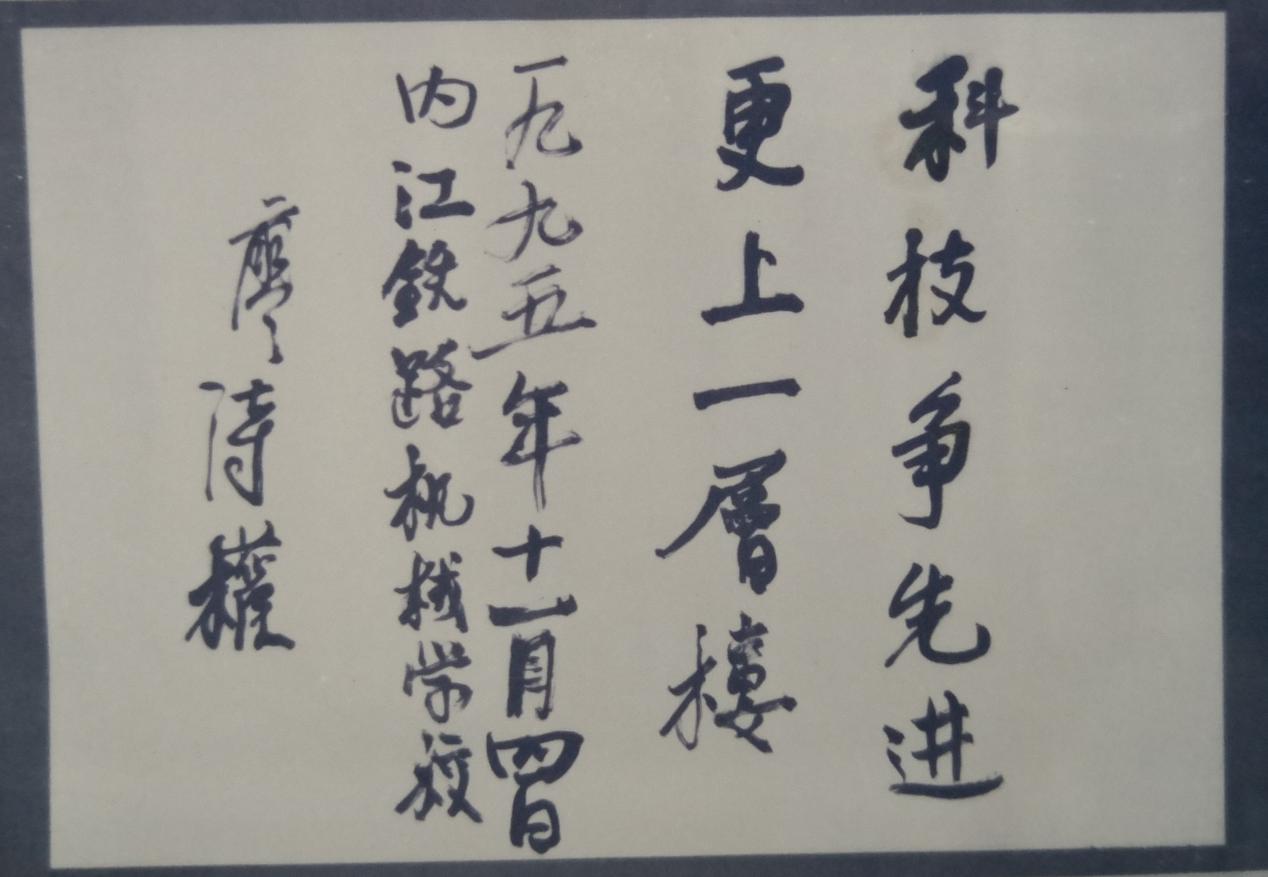 科技争先进
更上一層樓
一九九五年十一月四日
内江铁路机械学校
廖诗權